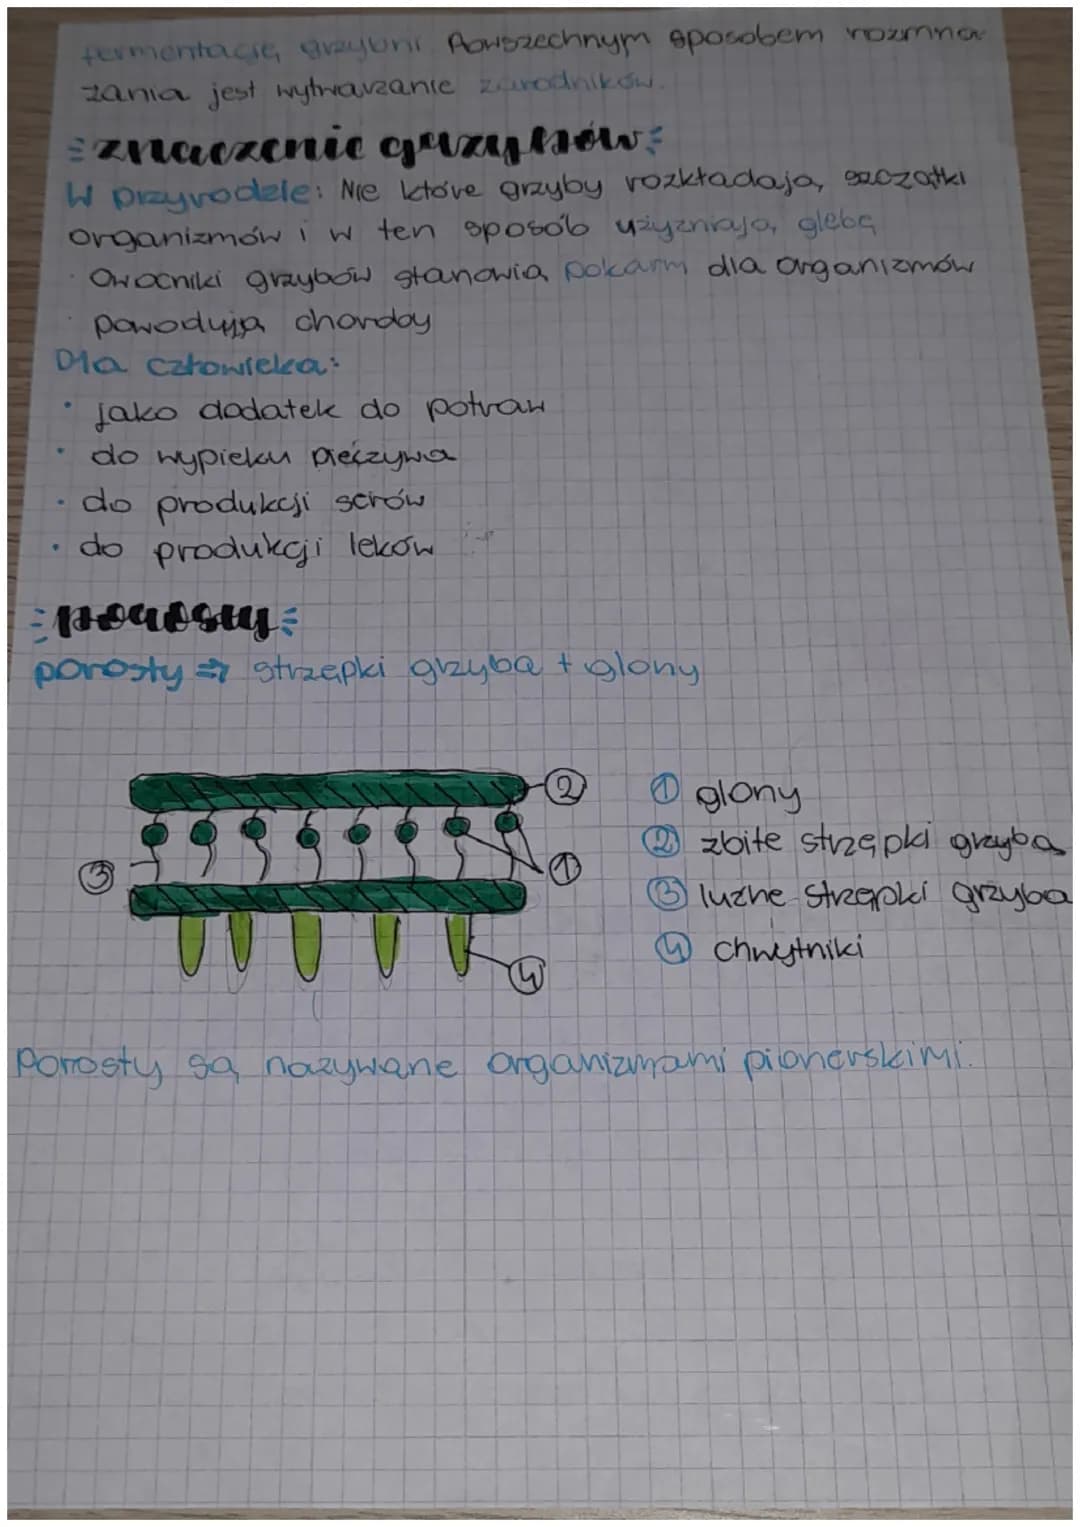 fermentację, grzybni. Powszechnym sposobem rozmna
żania jest wytwarzanie zarodników.
znaczenie grzybów
W przyrodzie: Nie które grzyby rozkładają szczątki
organizmów i w ten sposób użyźniają glebę
· Owocniki grzybów stanowią pokarm dla organizmów
· powodują choroby
Dla człowieka:
· jako dodatek do potraw
· do wypieku pieczywa
· do produkcji serów
· do produkcji leków
porosty
porosty ⇒ strzępki grzyba + glony
2
3
1
4
① glony
② zbite strzępki grzyba
③ luźne strzępki grzyba
④ chwytniki
Porosty są nazywane organizmami pionerskimi.